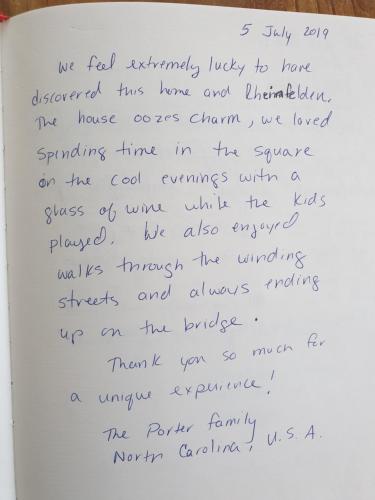 5 July 2019
We feel extremely lucky to have
discovered this home and Rheinfelden.
The house oozes charm, we loved
spending time in the square
in the cool evenings with a
glass of wine while the kids
played. We also enjoyed
walks through the winding
streets and always ending
up on the bridge.
Thank you so much for
a unique experience!
The Porter family
North Carolina, U.S.A.